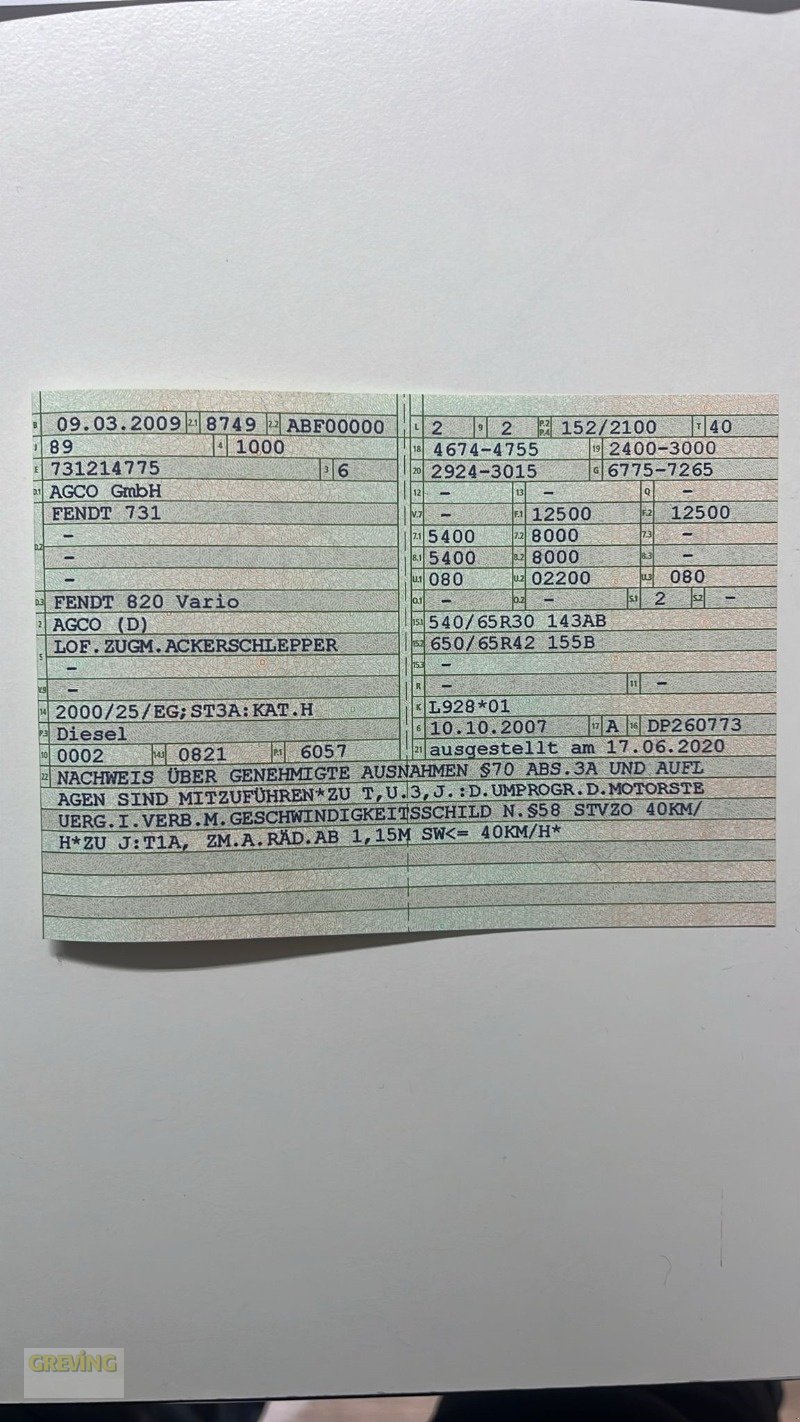 B 09.03.2009 2.1 8749 2.2 ABF00000
J 89 4 1000
E 731214775 3 6
D.1 AGCO GmbH
FENDT 731
–
D.2 –
–
D.3 FENDT 820 Vario
2 AGCO (D)
5 LOF.ZUGM.ACKERSCHLEPPER
–
V.9 –
14 2000/25/EG;ST3A:KAT.H
P.3 Diesel
10 0002 14.1 0821 P.1 6057
L 2 9 2 P.2 P.4 152/2100 T 40
18 4674-4755 19 2400-3000
20 2924-3015 G 6775-7265
12 – 13 – Q –
V.7 – F.1 12500 F.2 12500
7.1 5400 7.2 8000 7.3 –
8.1 5400 8.2 8000 8.3 –
U.1 080 U.2 02200 U.3 080
O.1 – O.2 – S.1 2 S.2 –
15.1 540/65R30 143AB
15.2 650/65R42 155B
15.3 –
R – 11 –
K L928*01
6 10.10.2007 17 A 16 DP260773
21 ausgestellt am 17.06.2020
22 NACHWEIS ÜBER GENEHMIGTE AUSNAHMEN §70 ABS.3A UND AUFL
AGEN SIND MITZUFÜHREN*ZU T,U.3,J.:D.UMPROGR.D.MOTORSTE
UERG.I.VERB.M.GESCHWINDIGKEITSSCHILD N.§58 STVZO 40KM/
H*ZU J:T1A, ZM.A.RÄD.AB 1,15M SW<= 40KM/H*
GREVING